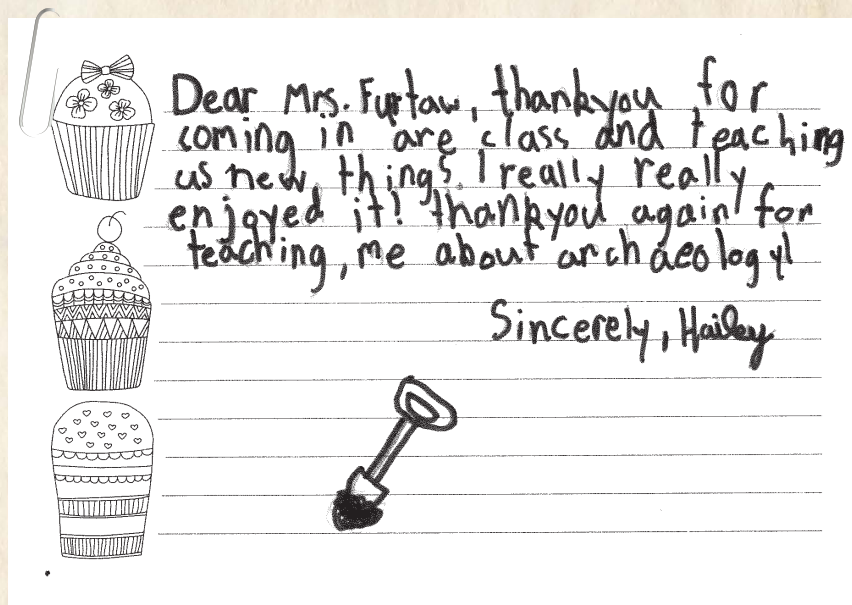 Dear Mrs. Furtaw, thankyou for
coming in are class and teaching
us new things. I really really
enjoyed it! thankyou again for
teaching, me about archaeology!
Sincerely, Hailey